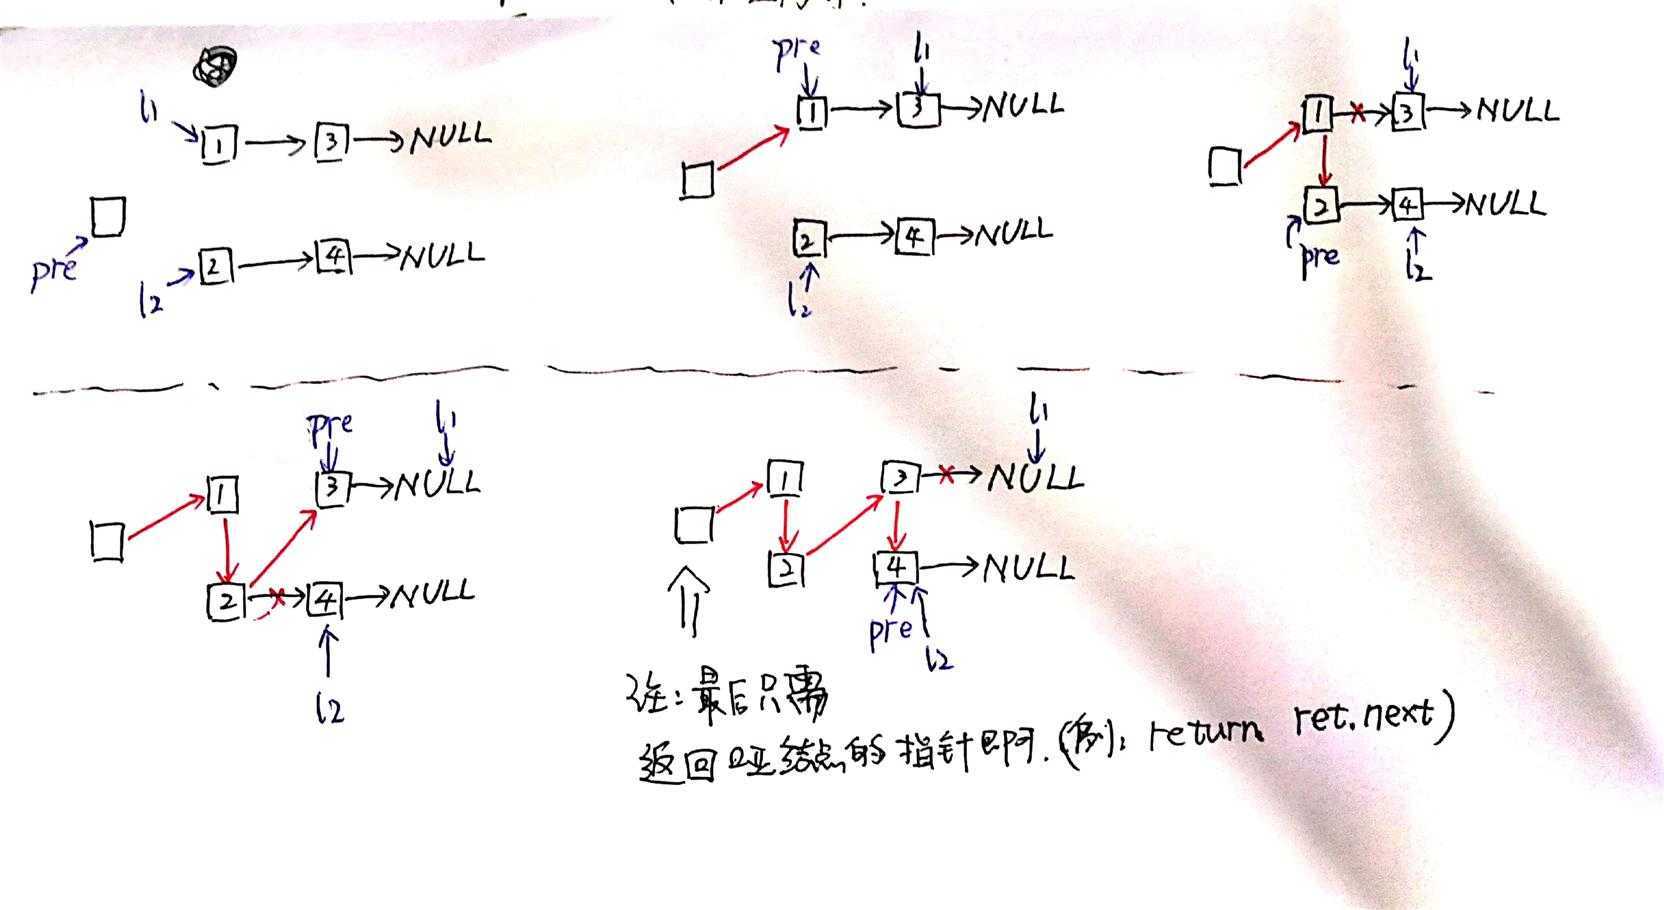 l1
1 3 NULL
pre
2 4 NULL
l2
pre l1
1 3 NULL
2 4 NULL
l2
l1
1 3 NULL
2 4 NULL
pre l2
pre l1
1 3 NULL
2 4 NULL
l2
l1
1 3 NULL
2 4 NULL
pre l2
注:最后只需
返回哑结点的指针即可.(例: return ret.next)